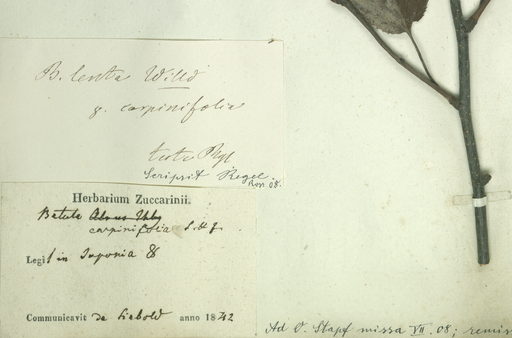 B. lenta Willd
γ. carpinifolia
teste Rgl
Scripsit Regel.
Ross. 08.
Herbarium Zuccarinii.
Betula
carpinifolia S. & Z.
Legit in Japonia
Communicavit de Siebold anno 1842
Ad O. Stapf missa VII. 08; remis